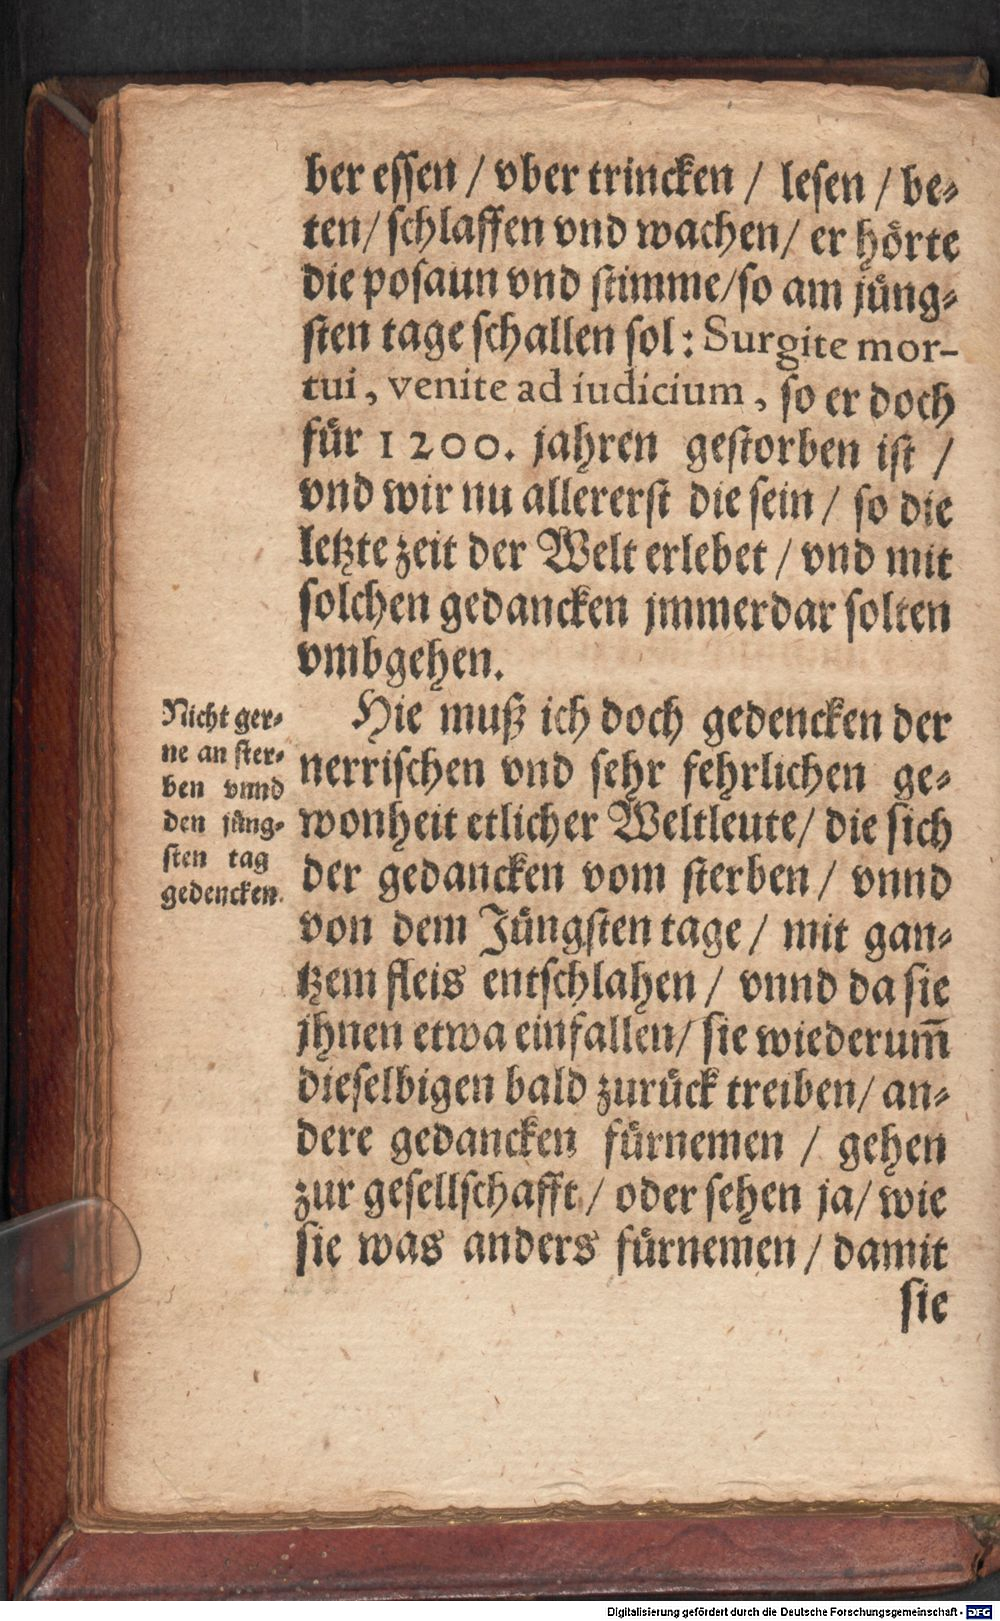 ber essen / vber trincken / lesen / be⸗
ten/ schlaffen vnd wachen/ er hörte
die posaun vnd stimme/so am jüng⸗
sten tage schallen sol: Surgite mor-
tui, venite ad iudicium, so er doch
für 1200. jahren gestorben ist /
vnd wir nu allererst die sein / so die
letzte zeit der Welt erlebet / vnd mit
solchen gedancken jmmerdar solten
vmbgehen.
Nicht ger⸗
ne an ster⸗
ben vnnd
den jüng⸗
sten tag
gedencken.
Hie muß ich doch gedencken der
nerrischen vnd sehr fehrlichen ge⸗
wonheit etlicher Weltleute/ die sich
der gedancken vom sterben / vnnd
von dem Jüngsten tage / mit gan⸗
tzem fleis entschlahen / vnnd da sie
jhnen etwa einfallen/ sie wiederum̅
dieselbigen bald zurück treiben/ an⸗
dere gedancken fürnemen / gehen
zur gesellschafft / oder sehen ja/ wie
sie was anders fürnemen / damit
sie
Digitalisierung gefördert durch die Deutsche Forschungsgemeinschaft - DFG